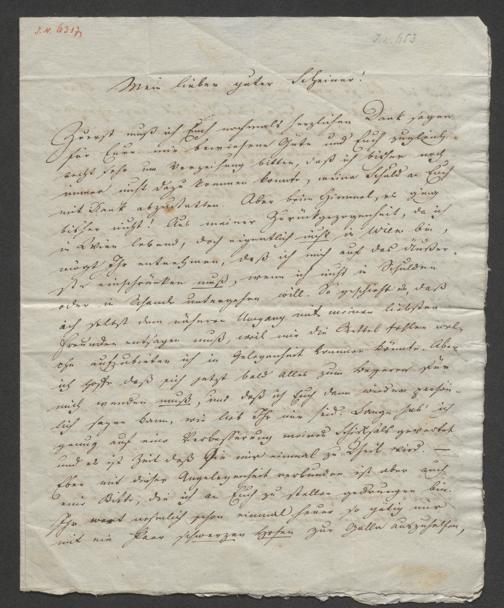 I.N. 6317
I.N. 653
Mein lieber guter Scheiner!
Zuerst muß ich Euch nochmals herzlichen Dank sagen
für Eure mir bewiesene Güte und Euch zugleich
recht sehr um Verzeihung bitten, daß ich bisher noch
immer nicht dazu kommen konnte, meine Schuld an Euch
mit Dank abzustatten. Aber beim Himmel, es ging
bisher nicht! Aus meiner Zurückgezogenheit, da ich
in Wien lebend, doch eigentlich nicht in Wien bin,
mögt Ihr entnehmen, daß ich mich auf das Äußer-
ste einschränken muß, wenn ich nicht in Schulden
oder in Schande untergehen will. So geschieht es, daß
ich selbst dem näheren Umgang mit meinen liebsten
Freunden entsagen muß, weil mir die Mittel fehlen
aufzubieten ich in Gelegenheit kommen könnte. Aber
ich hoffe daß sich jetzt bald alles zum besseren für
mich wenden muß, und daß ich Euch dann wieder persön-
lich sagen kann, wie lieb Ihr mir seid. Lange hab' ich
genug auf eine Verbesserung meines Schicksals gewartet
und es ist Zeit daß sie mir einmal zu Theil wird —
Eben mit dieser Angelegenheit verbunden ist aber auch
eine Bitte, die ich an Euch zu stellen gedrungen bin.
Ihr wart nehmlich schon einmal heuer so gütig mir
mit ein Paar schwarzen Hosen zur Galla auszuhelfen,